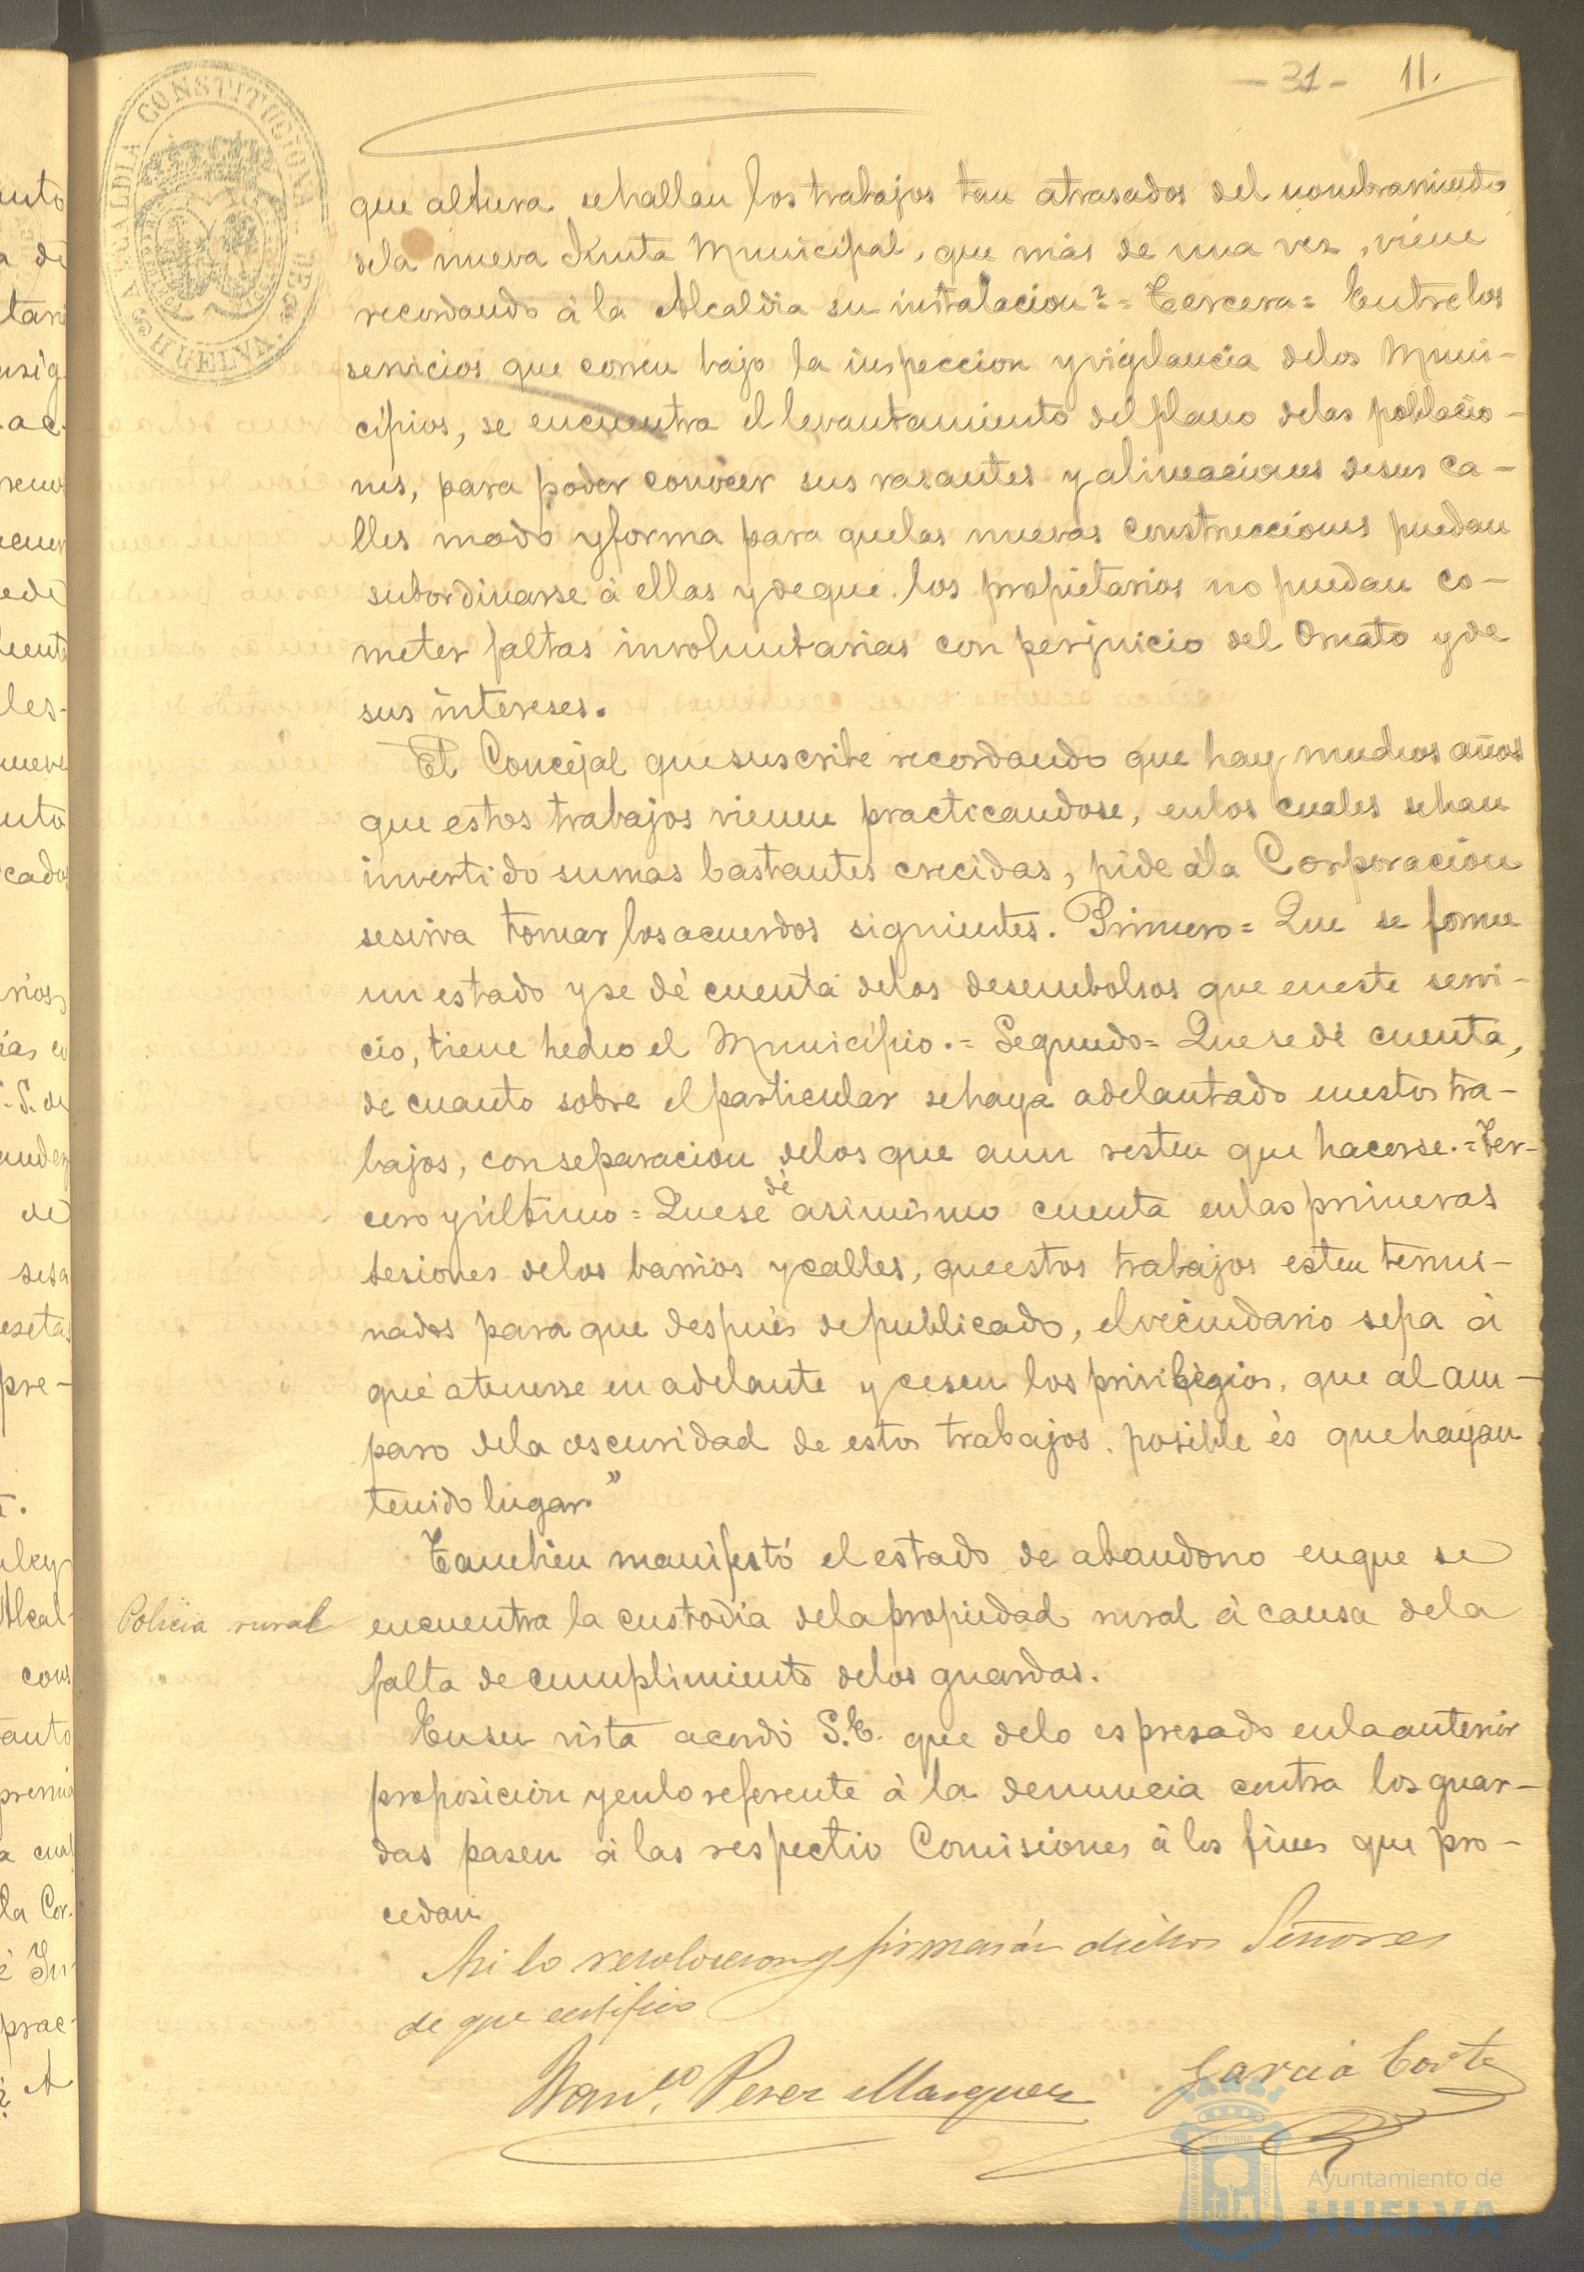 - 31 - 11.
ALCALDIA CONSTITUCIONAL DE HUELVA
que altura se hallan los trabajos tan atrasados del nombramiento
dela nueva Junta Municipal, que más de una vez, viene
recordando á la Alcaldia su instalacion? = Tercera = Entre los
servicios que corren bajo la inspeccion y vigilancia delos Muni-
cípios, se encuentra el levantamiento del plano delas poblacio-
nes, para poder conocer sus rasantes y alineaciones desus ca-
lles modo y forma para quelas nuevas construcciones puedan
subordinarse á ellas y deque los propietarios no puedan co-
meter faltas involuntarias con perjuicio del Ornato y de
sus intereses.
El Concejal que suscribe recordando que hay muchos años
que estos trabajos vienen practicandose, enlos cuales sehan
invertido sumas bastantes crecidas, pide ála Corporacion
sesirva tomar los acuerdos siguientes. Primero = Que se forme
un estado y se dé cuenta delos desembolsos que eneste servi-
cio, tiene hecho el Município. = Segundo = Que se dé cuenta,
de cuanto sobre el particular sehaya adelantado enestos tra-
bajos, con separacion delos que aun resten que hacerse. = Ter-
cero y último = Quese dé asimismo cuenta enlas primeras
sesiones delos barrios y calles, que estos trabajos esten termi-
nados para que despues de publicado, el vecindario sepa á
qué atenerse en adelante y cesen los privilegios, que al am-
paro dela oscuridad de estos trabajos, posible és que hayan
tenido lugar."
Tambien manifestó el estado de abandono enque se
Policia rural
encuentra la custodia dela propiedad rural á causa dela
falta de cumplimiento delos guardas.
Ensu vista acordó S.E. que delo espresado enla anterior
proposicion y enlo referente á la denuncia contra los guar-
das pasen á las respectiv Comisiones á los fines que pro-
cedan
Asi lo resolvieron y firmarán dichos Señores
de que certifico
Man<sup>lo</sup>. Perez Marquez García Cortes
Ayuntamiento de
HUELVA